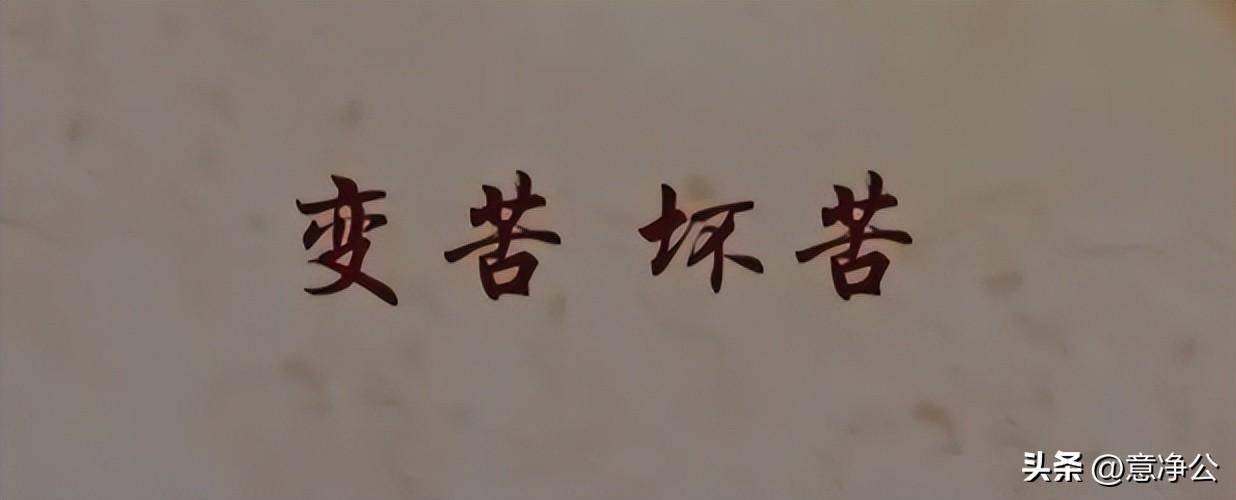 变苦坏苦
头条 @意净公